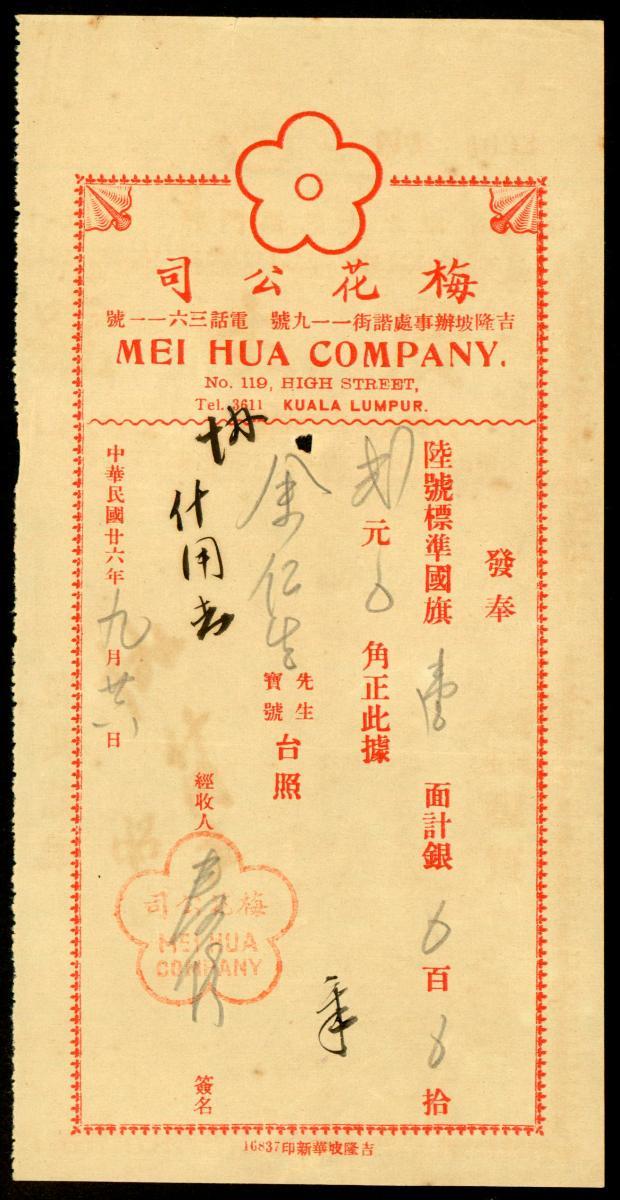 梅花公司
吉隆坡辦事處諧街一一九號 電話三六一一號
MEI HUA COMPANY.
No. 119, HIGH STREET,
Tel. 3611 KUALA LUMPUR.
發奉
陸號標準國旗壹面計銀0百0拾
弍元0角正此據
余仁生先生寶號台照
什用去
經收人 簽名
梅花公司
MEI HUA
COMPANY
中華民國廿六年九月日
吉隆坡華新印16837